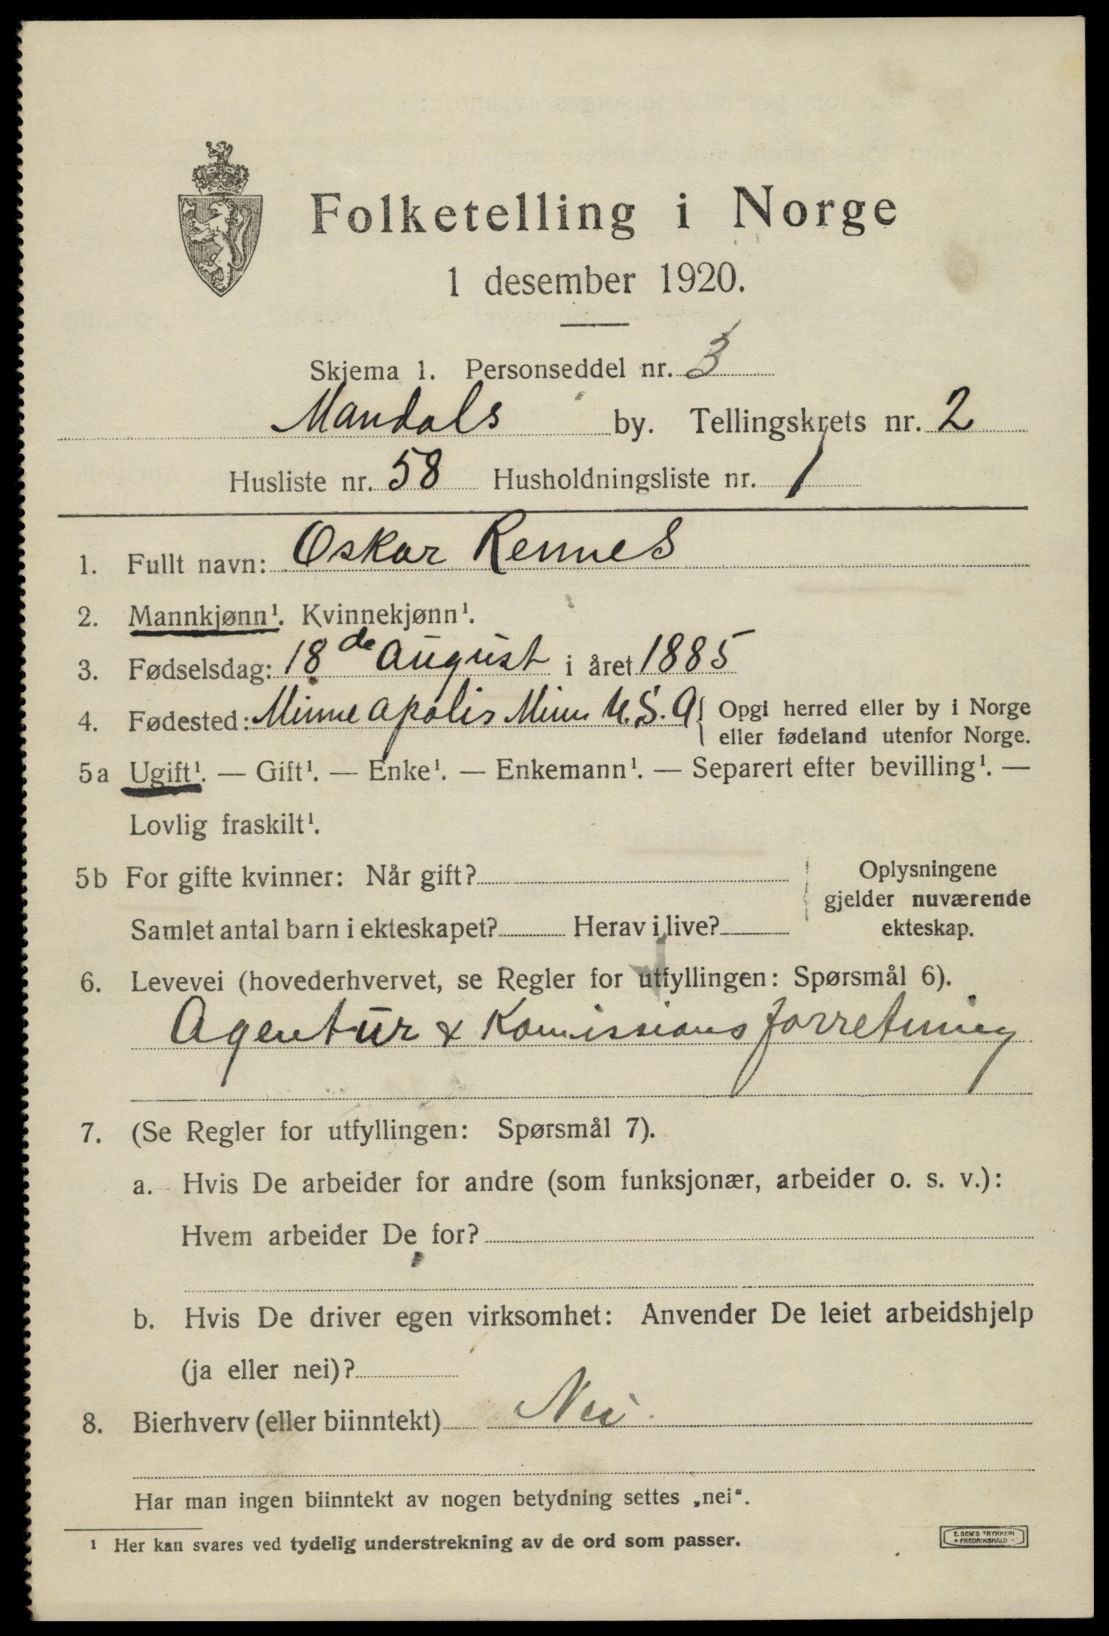 Folketelling i Norge
1 desember 1920.
Skjema 1. Personseddel nr. 3
Mandals by. Tellingskrets nr. 2
Husliste nr. 58 Husholdningsliste nr. 1
1. Fullt navn: Oskar Rennes
2. Mannkjønn¹. Kvinnekjønn¹.
3. Fødselsdag: 18de August i året 1885
4. Fødested: Minneapolis Minn U.S.A { Opgi herred eller by i Norge
eller fødeland utenfor Norge.
5a Ugift¹. — Gift¹. — Enke¹. — Enkemann¹. — Separert efter bevilling¹. —
Lovlig fraskilt¹.
5b For gifte kvinner: Når gift? Oplysningene
gjelder nuværende
Samlet antal barn i ekteskapet? Herav i live? ekteskap.
6. Levevei (hovederhvervet, se Regler for utfyllingen: Spørsmål 6).
Agentur & Komissionsforretning
7. (Se Regler for utfyllingen: Spørsmål 7).
a. Hvis De arbeider for andre (som funksjonær, arbeider o. s. v.):
Hvem arbeider De for?
b. Hvis De driver egen virksomhet: Anvender De leiet arbeidshjelp
(ja eller nei)?
8. Bierhverv (eller biinntekt) Nei.
Har man ingen biinntekt av nogen betydning settes „nei“.
¹ Her kan svares ved tydelig understrekning av de ord som passer.
E. SEM'S TRYKKERI
FREDRIKSHALD